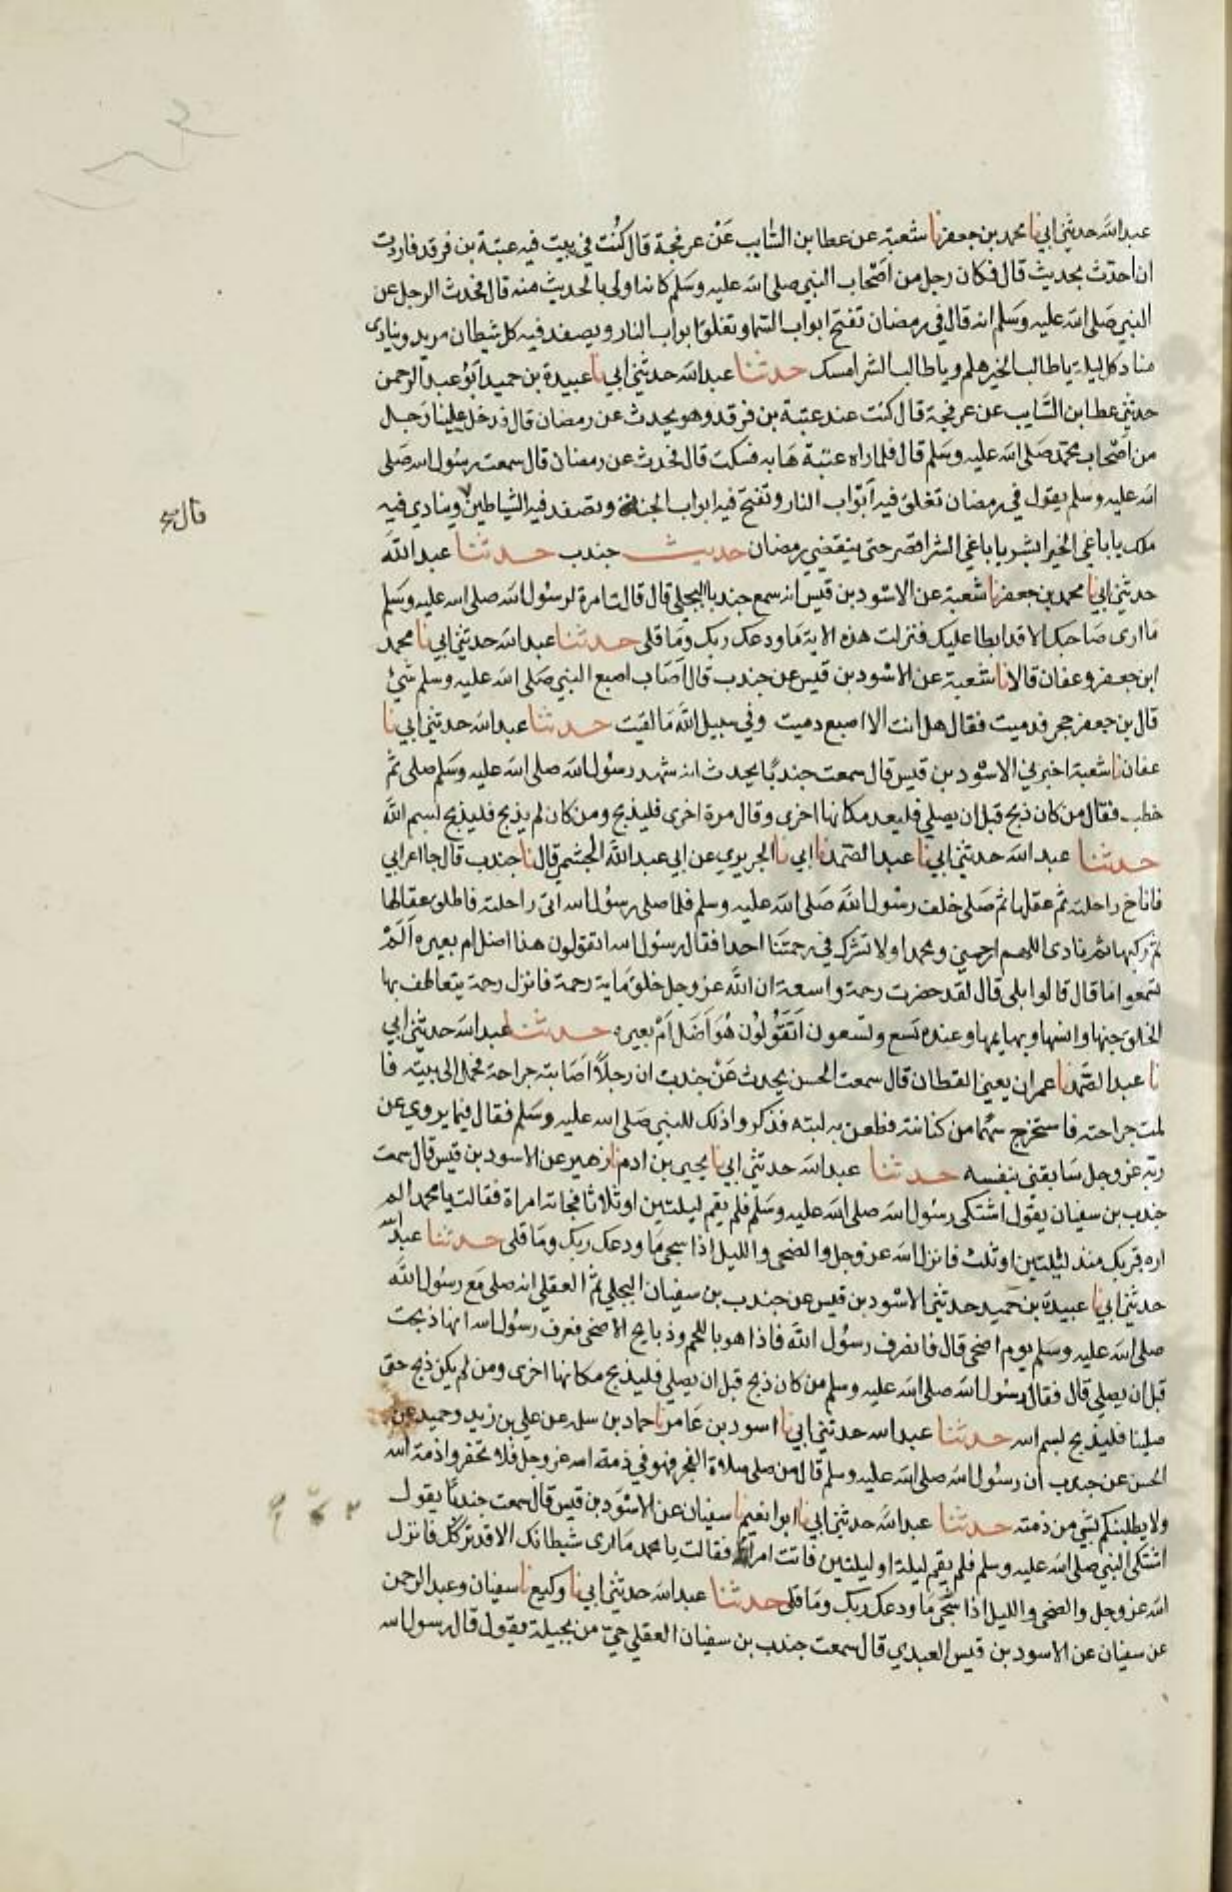 عبد الله حدثني ابي نا محمد بن جعفر نا شعبة عن عطا بن السّايب عَنْ عرفجة قال كُنْت في بيت فيه عتبة بن فرقد فاردت
ان احدّث بحديث قال فكان رجل من اصْحاب النبي صلى الله عليه وسَلم كانه اولى بالحديث منه قال فحدث الرجل عن
النبي صَلى الله عليه وسَلم انه قال في رمضان تفتح ابواب السّما وتغلق ابواب النار ويصفد فيه كل شيطان مريد وينادى
مناد كل ليلة ياطالب الخير هلم وياطالب الشر امسك حدثنا عبد الله حدثني ابي نا عبيدة بن حميد ابَوُ عبد الرحمن
حدثني عطا بن السَّايب عن عرفجة قال كنت عند عتبة بن فرقد وهو يحدث عن رمضان قال فدخل علينا رَجل
من اصْحاب محمّد صَلى الله عليه وسَلم قال فلما راه عتبة هَابه فسكت قال فحدث عن رمضان قال سمعت رسُول الله صَلى
الله عليه وسلم يقول في رمضان تغلق فيه ابْوَاب النار وتفتح فيه ابواب الجنة وتصفد فيه الشياطين وينادي فيه
قال
ملك ياباغي الخير ابشر ياباغي الشر اقصر حتى ينقضي رمضان حديث جندب حدثنا عبد الله
حدثني ابي نا محمد بن جعفر نا شعبة عن الاسْود بن قيس انه سمع جندبا البجلي قال قالت امرة لرسُول الله صلى الله عليه وسَلم
مَا ارى صَاحبك الا قد ابطا عليك فنزلت هذه الاية مَا ودعك ربك ومَا قلى حدثنا عبد الله حدثني ابي نا محمد
ابن جعفر وعفان قالا نا شعبة عن الاسْود بن قيس عن جندب قال اصَاب اصبع النبي صَلى الله عليه وسلم شئ
قال بن جعفر حجر فدميت فقال هل انت الا اصبع دميت وفي سبيل الله مَا لقيت حدثنا عبد الله حدثني ابي نا
عفان نا شعبة اخبرني الاسْود بن قيس قال سمعت جندبًا يحدث انه شهد رسُول الله صلى الله عليه وسَلم صلى ثمّ
خطب فقال من كان ذبح قبل ان يصلي فليعد مكانها اخرى وقال مرة اخرى فليذبح ومن كان لم يذبح فليذبح بسم الله
حدثنا عبد الله حدثني ابي نا عبد الصّمد نا ابي نا الجريري عن ابي عبد الله الجشمي قال نا جندب قال جا اعرابي
فاناخ راحلته ثمّ عقلها ثم صَلى خلف رسُول الله صَلى الله عليه وسلم فلما صلى رسُول الله اتى راحلته فاطلق عقالها
ثمّ ركبها ثم نادى اللهم ارحمني ومحمدا ولا تشرك في رحمتنَا احدا فقال رسُول الله اتقولون هذا اضل ام بعيره اَلَمْ
تسْمعوا مَا قال قالوا بلى قال لقد حضرت رحمة واسعة ان الله عز وجل خلق مَاية رحمة فانزل رحمة يتعاطف بها
الخلق جنها وانسها وبهايمها وعنده تسع وتسعون اتَقُولُون هُوَ اَضَل امْ بعيره حدثنا عبد الله حدثني ابي
نا عبد الصّمد نا عمران يعني القطان قال سمعت الحسن يحدث عَنْ جندب ان رجلاً اصَابته جراحة فحمل الى بيته فا
لمت جراحته فاستخرج سَهْما من كنانته فطعن به لبته فذكروا ذلك للنبي صَلى الله عليه وسَلم فقال فيما يروي عن
ربّه عز وجل سَابقني بنفسه حدثنا عبد الله حدثني ابي نا يحيى بن ادم نا زهير عن الاسود بن قيس قال سمعت
جندب بن سفيان يقول اشتكى رسُول الله صلى الله عليه وسَلم فلم يقم ليلتين او ثلاثا فجاته امراة فقالت يا محمد الم
اره قربك منذ ليلتين او ثلث فانزل الله عز وجل والضحى والليل اذا سجى مَا ودعك ربك ومَا قلى حدثنا عبد الله
حدثني ابي نا عبيدة بن حميد حدثني الاسْود بن قيس عن جندب بن سفيان البجلي ثمّ العقلي انه صلى مَع رسُول الله
صلى الله عليه وسَلم يوم اضحى قال فانصرف رسُول الله فاذا هو باللحم وذبايح الاضحى فعرف رسُول الله انها ذبحت
قبل ان يصلي قال فقال رسُول الله صلى الله عليه وسلم من كان ذبح قبل ان يصلي فليذبح مكانها اخرى ومن لم يكن ذبح حتى
صلينا فليذبح بسم الله حدثنا عبد الله حدثني ابي نا اسود بن عَامر نا حماد بن سلمه عن علي بن زيد وحميد عن
الحسن عن جندب ان رسُول الله صلى الله عليه وسلم قال من صلى صلاة الفجر فهو في ذمة الله عز وجل فلا تخفروا ذمة الله
ولا يطلبنكم بشي من ذمته حدثنا عبد الله حدثني ابي نا ابوا نعيم نا سفيان عن الاسْوَد بن قيس قال سمعت جندبًا يقول
اشتكى النبي صلى الله عليه وسلم فلم يقم ليلة او ليلتين فاتت امراة فقالت يا محمد مَا ارى شيطانك الا قد تركك فانزل
الله عز وجل والضحى والليل اذا سَجَى مَا ودعك ربك ومَا قلى حدثنا عبد الله حدثني ابي نا وكيع نا سفيان وعبد الرحمن
عن سفيان عن الاسود بن قيس العبدي قال سمعت جندب بن سفيان العقلي حيّ من بجيلة يقول قال رسول الله